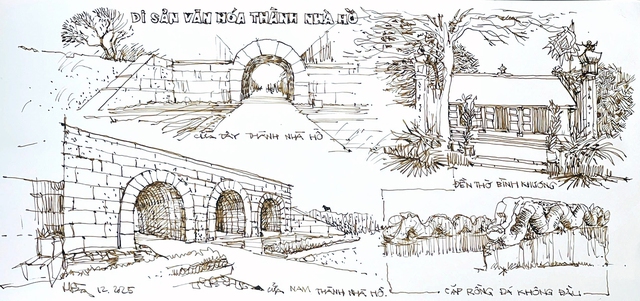 DI SẢN VĂN HÓA THÀNH NHÀ HỒ
CỬA TÂY THÀNH NHÀ HỒ
ĐỀN THỜ BÌNH KHƯƠNG
12.2025
CỬA NAM THÀNH NHÀ HỒ.
CẶP RỒNG ĐÁ KHÔNG ĐẦU